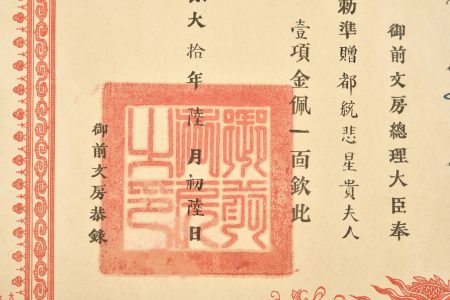 御前文房總理大臣奉
勅準贈都統悲星貴夫人
壹項金佩一面欽此
大拾年陸月初陸日
御前文房恭錄
御前
文房
之印